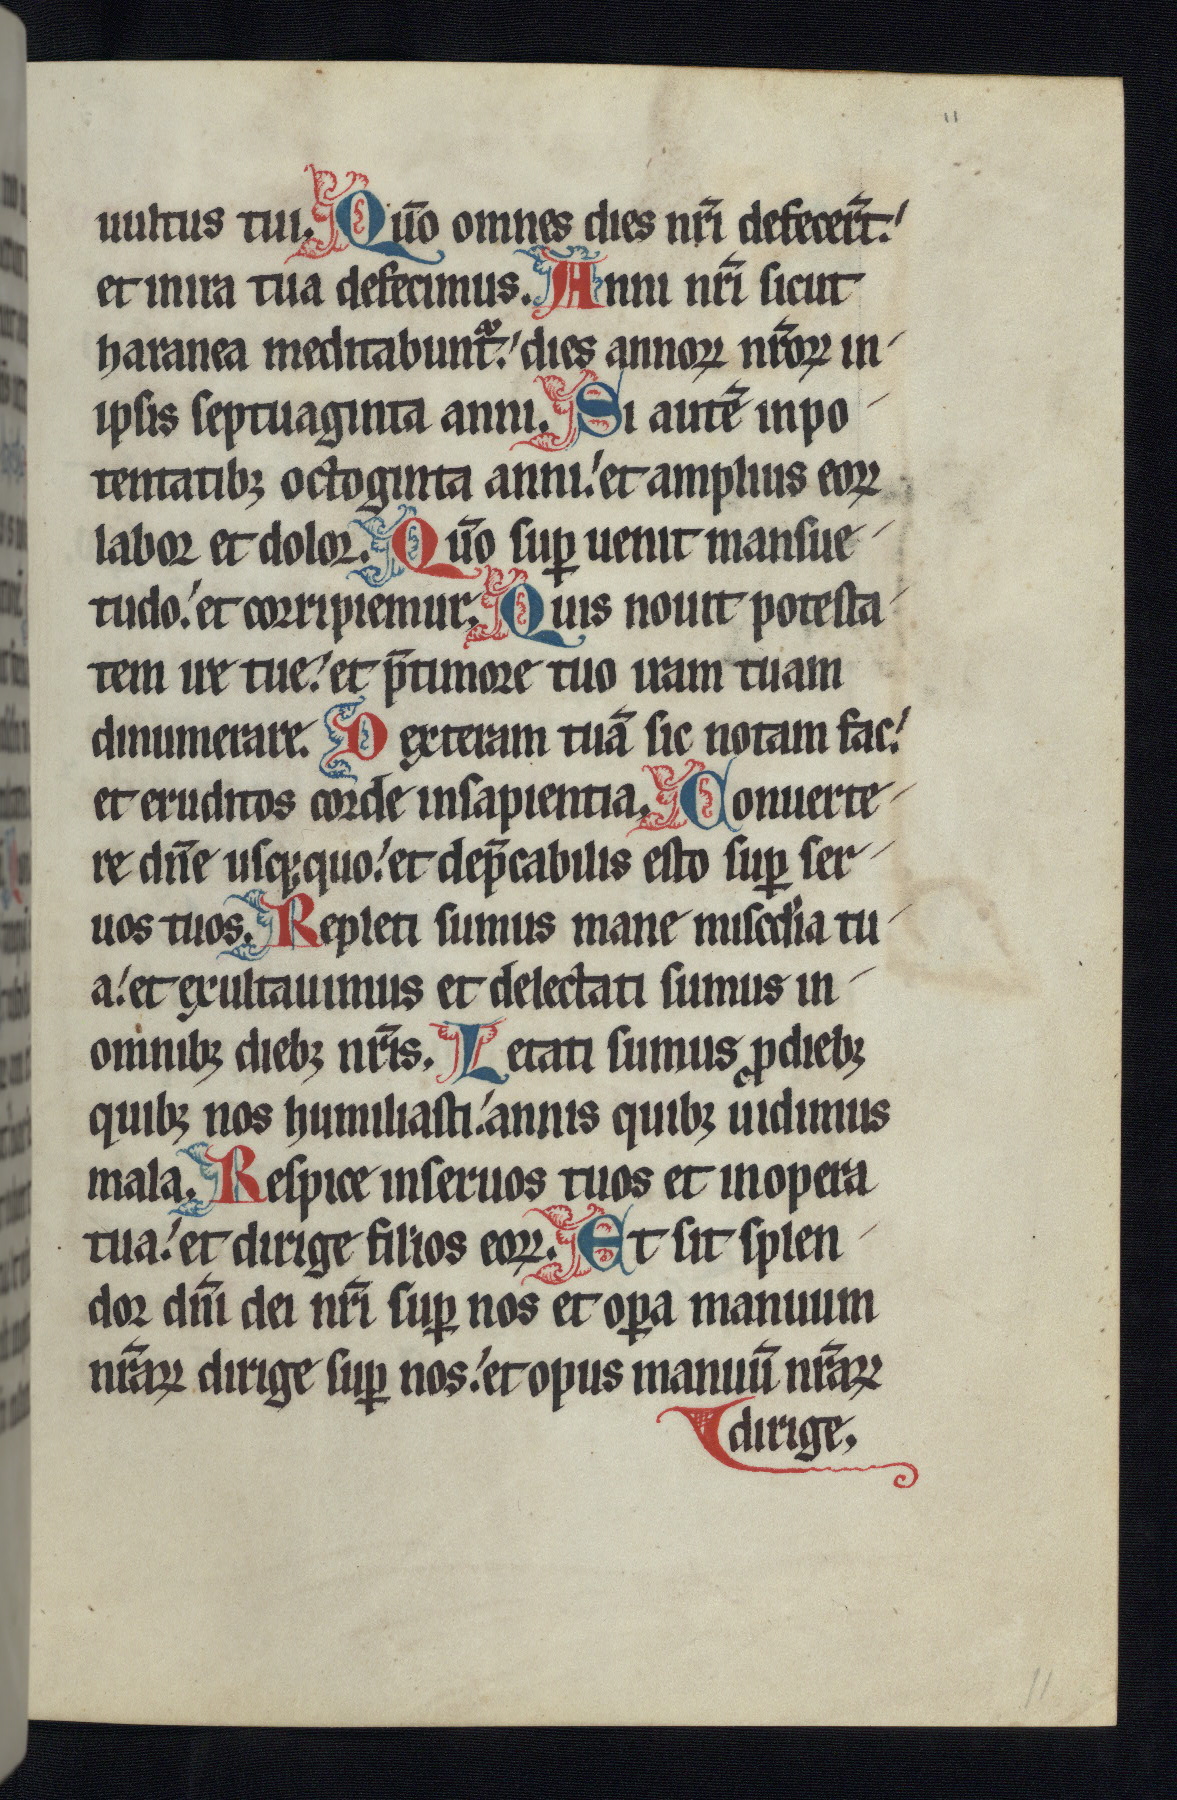 11
uultus tui. Qūo omnes dies nr̄i defecer̄t:
et inira tua defecimus. Anni nr̄i sicut
haranea meditabunt᷑: dies annoꝝ nr̄oꝝ in-
ipsis septuaginta anni. Si autē inpo-
tentatibꝫ octoginta anni: et amplius eoꝝ
labor et dolor. Qūo suꝑ uenit mansue-
tudo: et corripiemur. Quis nouit potesta-
tem ire tue: et p̄timore tuo iram tuam
dinumerare. Dexteram tuā sic notam fac:
et eruditos corde insapientia. Conuerte-
re dn̄e usqꝫquo: et dep̄cabilis esto suꝑ ser-
uos tuos. Repleti sumus mane misc̄dia tu-
a: et exultauimus et delectati sumus in-
omnibꝫ diebꝫ nr̄is. Letati sumus ꝓdiebꝫ
quibꝫ nos humiliasti: annis quibꝫ uidimus
mala. Respice inseruos tuos et inopera
tua: et dirige filios eoꝝ. Et sit splen-
dor dn̄i dei nr̄i suꝑ nos et oꝑa manuum
nr̄aꝝ dirige suꝑ nos: et opus manuū nr̄aꝝ
dirige.
11